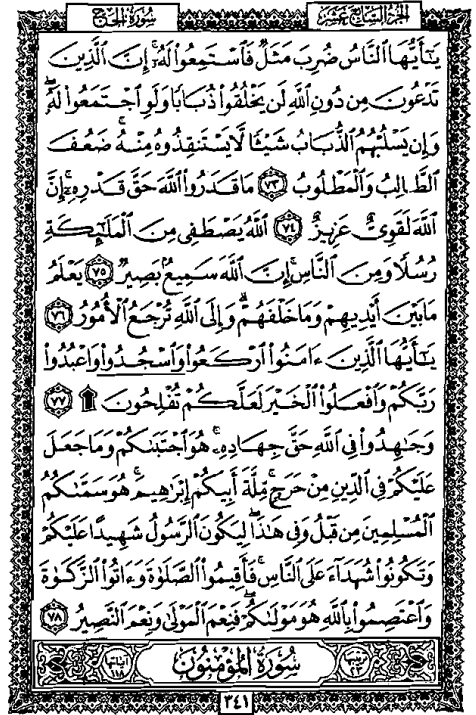 الجزء السابع عشر
سورة الحج
يَـٰٓأَيُّهَا ٱلنَّاسُ ضُرِبَ مَثَلٌ فَٱسْتَمِعُوا۟ لَهُۥٓ ۚ إِنَّ ٱلَّذِينَ
تَدْعُونَ مِن دُونِ ٱللَّهِ لَن يَخْلُقُوا۟ ذُبَابًا وَلَوِ ٱجْتَمَعُوا۟ لَهُۥ ۖ
وَإِن يَسْلُبْهُمُ ٱلذُّبَابُ شَيْـًٔا لَّا يَسْتَنقِذُوهُ مِنْهُ ۚ ضَعُفَ
ٱلطَّالِبُ وَٱلْمَطْلُوبُ ٧٣ مَا قَدَرُوا۟ ٱللَّهَ حَقَّ قَدْرِهِۦٓ ۗ إِنَّ
ٱللَّهَ لَقَوِىٌّ عَزِيزٌ ٧٤ ٱللَّهُ يَصْطَفِى مِنَ ٱلْمَلَـٰٓئِكَةِ
رُسُلًا وَمِنَ ٱلنَّاسِ ۚ إِنَّ ٱللَّهَ سَمِيعٌۢ بَصِيرٌ ٧٥ يَعْلَمُ
مَا بَيْنَ أَيْدِيهِمْ وَمَا خَلْفَهُمْ ۗ وَإِلَى ٱللَّهِ تُرْجَعُ ٱلْأُمُورُ ٧٦
يَـٰٓأَيُّهَا ٱلَّذِينَ ءَامَنُوا۟ ٱرْكَعُوا۟ وَٱسْجُدُوا۟ وَٱعْبُدُوا۟
رَبَّكُمْ وَٱفْعَلُوا۟ ٱلْخَيْرَ لَعَلَّكُمْ تُفْلِحُونَ ۩ ٧٧
وَجَـٰهِدُوا۟ فِى ٱللَّهِ حَقَّ جِهَادِهِۦ ۚ هُوَ ٱجْتَبَىٰكُمْ وَمَا جَعَلَ
عَلَيْكُمْ فِى ٱلدِّينِ مِنْ حَرَجٍ ۚ مِّلَّةَ أَبِيكُمْ إِبْرَٰهِيمَ ۚ هُوَ سَمَّىٰكُمُ
ٱلْمُسْلِمِينَ مِن قَبْلُ وَفِى هَـٰذَا لِيَكُونَ ٱلرَّسُولُ شَهِيدًا عَلَيْكُمْ
وَتَكُونُوا۟ شُهَدَآءَ عَلَى ٱلنَّاسِ ۚ فَأَقِيمُوا۟ ٱلصَّلَوٰةَ وَءَاتُوا۟ ٱلزَّكَوٰةَ
وَٱعْتَصِمُوا۟ بِٱللَّهِ هُوَ مَوْلَىٰكُمْ ۖ فَنِعْمَ ٱلْمَوْلَىٰ وَنِعْمَ ٱلنَّصِيرُ ٧٨
سُورَةُ المُؤْمِنُون
آياتها ١١٨
٣٤١